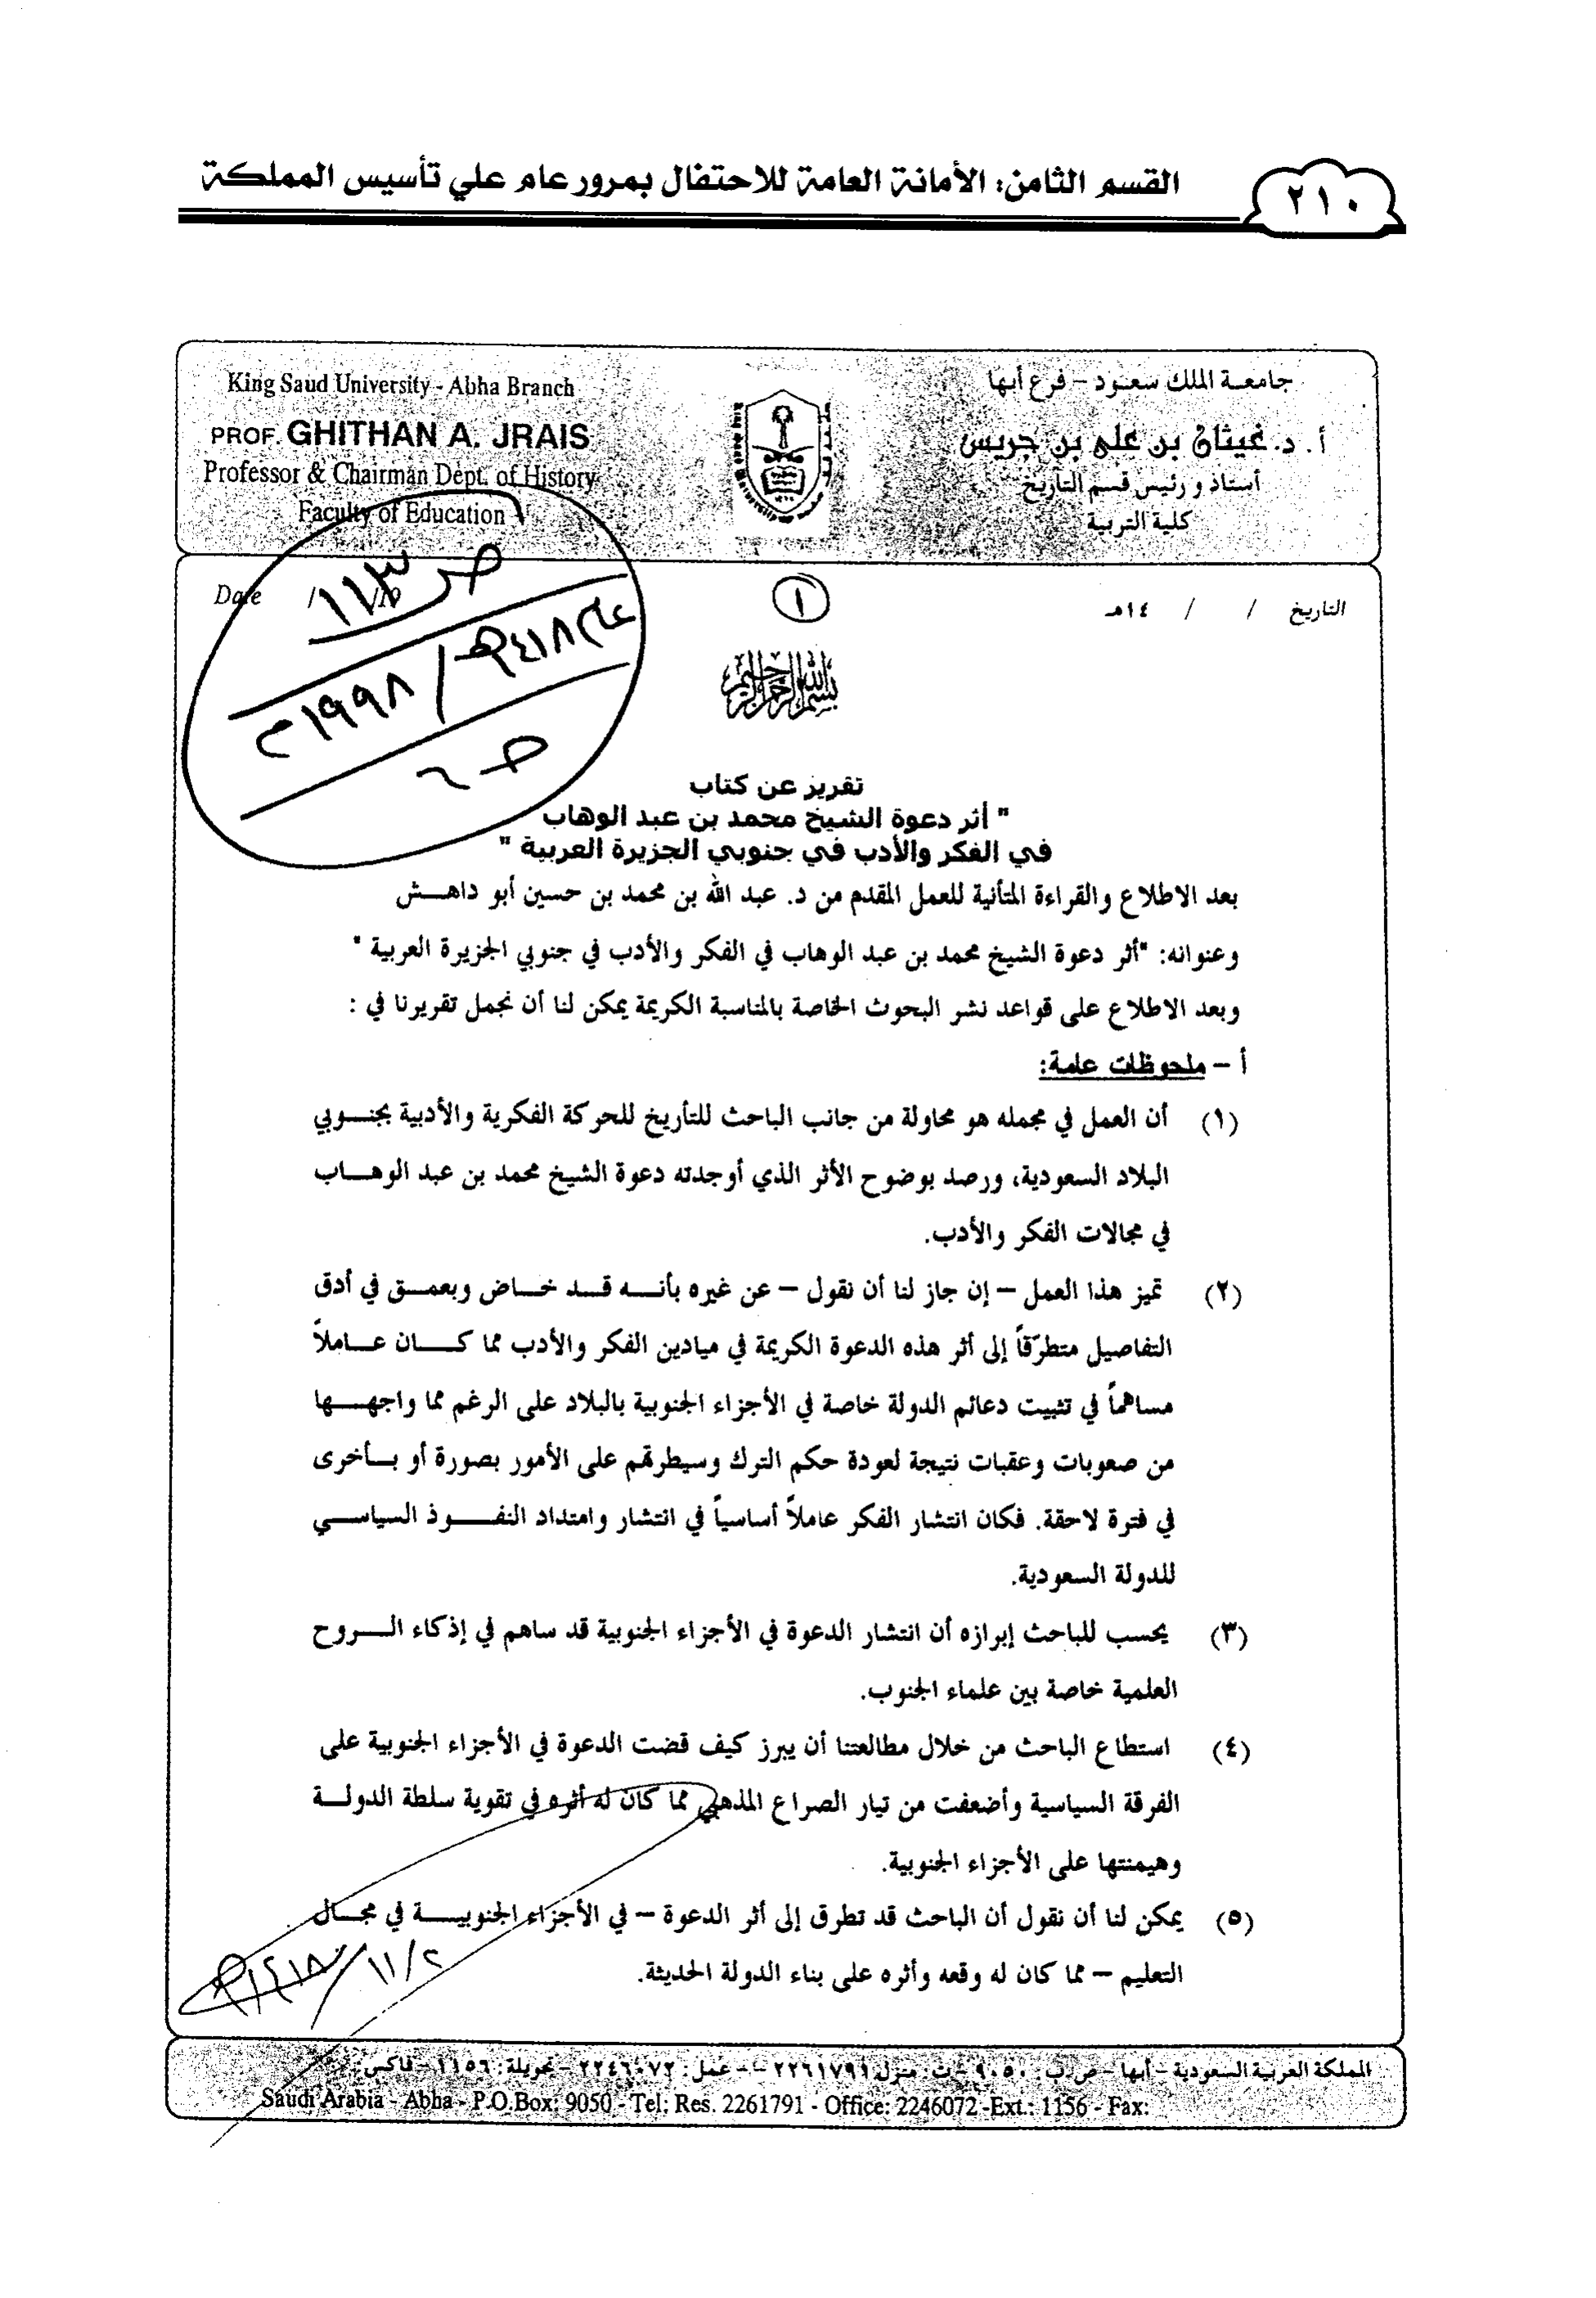 القسم الثامن: الأمانة العامة للاحتفال بمرور عام علي تأسيس المملكة
٢١٠
King Saud University - Abha Branch
PROF. GHITHAN A. JRAIS
Professor & Chairman Dept. of History
Faculty of Education
جامعة الملك سعود - فرع أبها
أ . د. غيثان بن علي بن جريس
أستاذ و رئيس قسم التاريخ
كلية التربية
Date / /19
التاريخ / / ١٤هـ
١
ص ١١٣
عام ١٤١٨هـ / ١٩٩٨م
بسم الله الرحمن الرحيم
تقرير عن كتاب
" أثر دعوة الشيخ محمد بن عبد الوهاب
في الفكر والأدب في جنوبي الجزيرة العربية "
بعد الاطلاع والقراءة المتأنية للعمل المقدم من د. عبد الله بن محمد بن حسين أبو داهش
وعنوانه: "أثر دعوة الشيخ محمد بن عبد الوهاب في الفكر والأدب في جنوبي الجزيرة العربية "
وبعد الاطلاع على قواعد نشر البحوث الخاصة بالمناسبة الكريمة يمكن لنا أن نجمل تقريرنا في :
أ – ملحوظات عامة:
(١) أن العمل في مجمله هو محاولة من جانب الباحث للتأريخ للحركة الفكرية والأدبية بجنوبي
البلاد السعودية، ورصد بوضوح الأثر الذي أوجدته دعوة الشيخ محمد بن عبد الوهاب
في مجالات الفكر والأدب.
(٢) تميز هذا العمل – إن جاز لنا أن نقول – عن غيره بأنه قد خاض وبعمق في أدق
التفاصيل متطرقاً إلى أثر هذه الدعوة الكريمة في ميادين الفكر والأدب مما كان عاملاً
مساهماً في تثبيت دعائم الدولة خاصة في الأجزاء الجنوبية بالبلاد على الرغم مما واجهها
من صعوبات وعقبات نتيجة لعودة حكم الترك وسيطرتهم على الأمور بصورة أو بأخرى
في فترة لاحقة. فكان انتشار الفكر عاملاً أساسياً في انتشار وامتداد النفوذ السياسي
للدولة السعودية.
(٣) يحسب للباحث إبرازه أن انتشار الدعوة في الأجزاء الجنوبية قد ساهم في إذكاء الروح
العلمية خاصة بين علماء الجنوب.
(٤) استطاع الباحث من خلال مطالعتنا أن يبرز كيف قضت الدعوة في الأجزاء الجنوبية على
الفرقة السياسية وأضعفت من تيار الصراع المذهبي مما كان له أثره في تقوية سلطة الدولة
وهيمنتها على الأجزاء الجنوبية.
(٥) يمكن لنا أن نقول أن الباحث قد تطرق إلى أثر الدعوة – في الأجزاء الجنوبية في مجال
التعليم – مما كان له وقعه وأثره على بناء الدولة الحديثة.
٢/١١/١٤١٨هـ
المملكة العربية السعودية - أبها - ص.ب : ٩٠٥٠ - ت: منزل ٢٢٦١٧٩١ - عمل: ٢٢٤٦٠٧٢ - تحويلة: ١١٥٦ - فاكس:
Saudi Arabia - Abha - P.O.Box: 9050 - Tel: Res. 2261791 - Office: 2246072 -Ext.: 1156 - Fax: